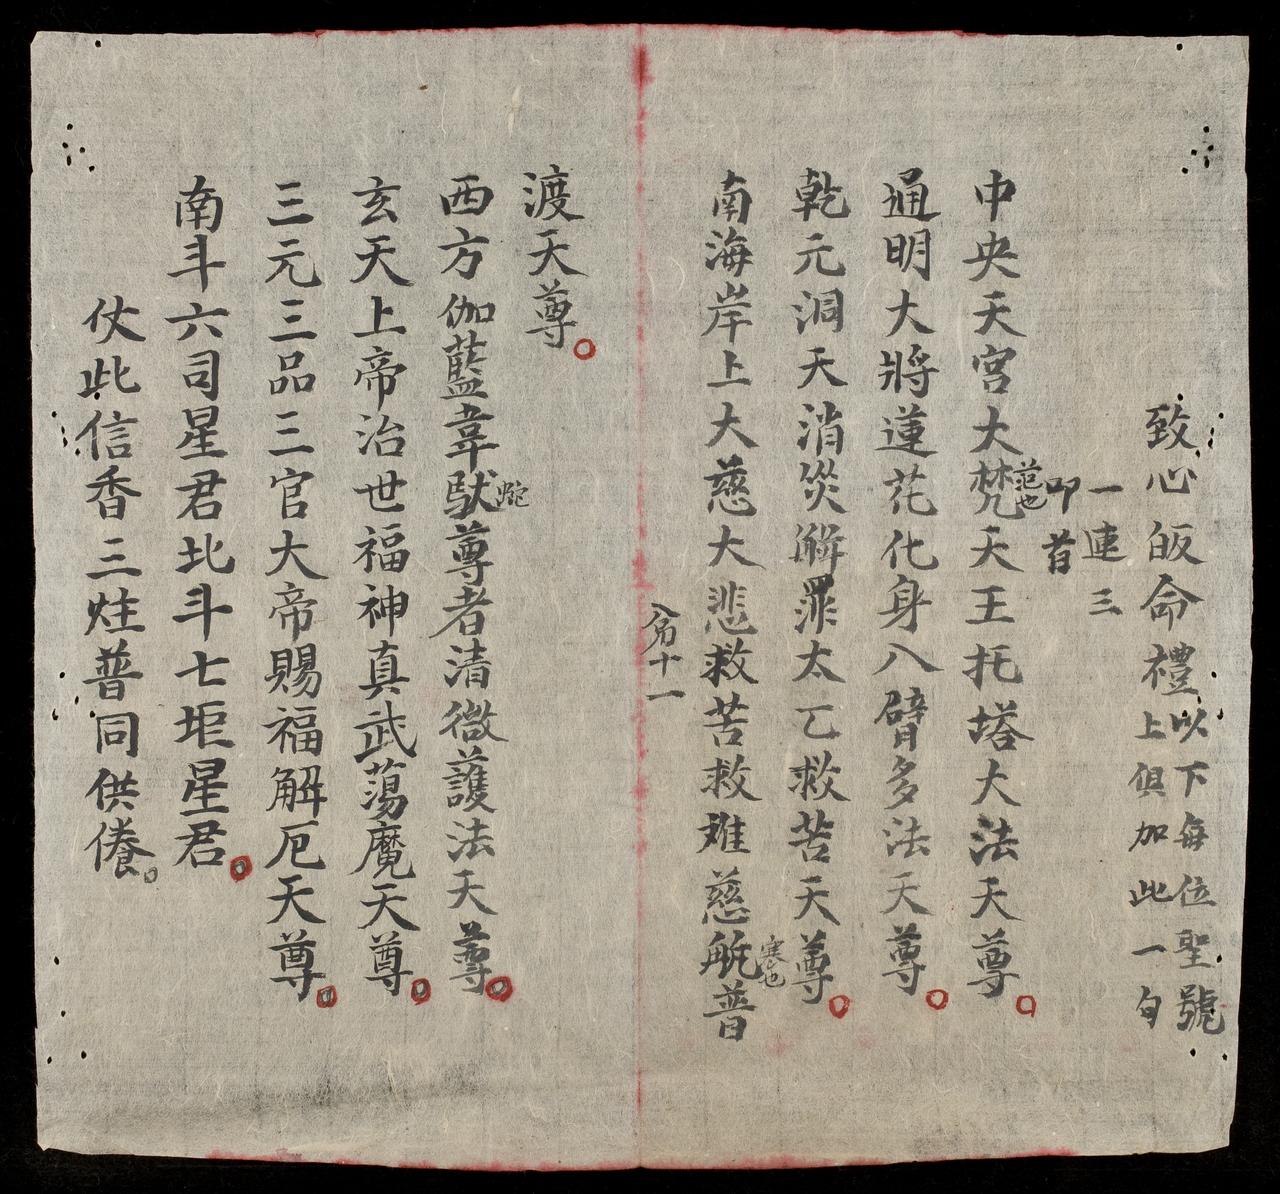 致心皈命禮
以下每位聖號
上俱加此一句
一連三
叩首
中央天宮大梵天王托塔大法天尊
范也
通明大將蓮花化身八臂多法天尊
乾元洞天消災解罪太乙救苦天尊
南海岸上大慈大悲救苦救难慈航普
寒也
十一
渡天尊
西方伽藍韋馱尊者清微護法天尊
蛇
玄天上帝治世福神真武蕩魔天尊
三元三品三官大帝賜福解厄天尊
南斗六司星君北斗七㘩星君
仗此信香三炷普同供倦